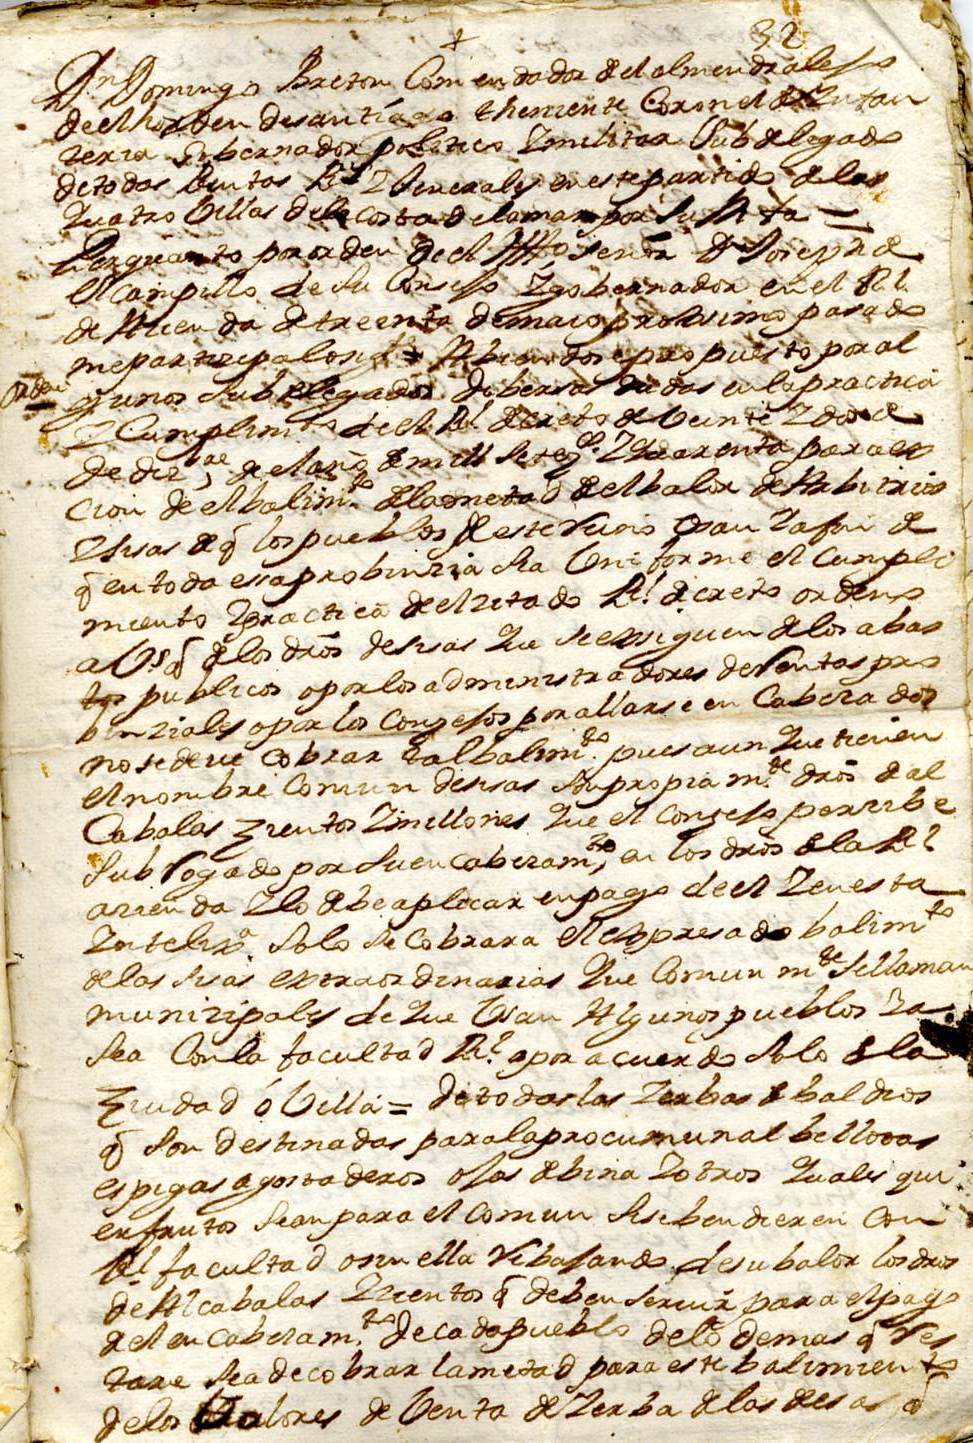 32
+
Dn Domingo Breton Comendador de el almendralejo
de el horden de santiago theniente Coronel de Ynfan
teria Gobernador politico Ymilitar Subdelegado
de todas Rentas Rs Y Generales en este partido de las
Quatro Villas de la costa de la mar por Su M ta =
Por quanto por orden de el Ylmo Señor Dn Joseph de
el campillo de Su Consejo Y gobernador en el Rl
de Hazienda de treinta de maio proximo pasado
me partizipa lo sigte = Abiendose propuesto por al
Orden
gunos Subdelegados dibersas dudas en la practica
Y Cumplimto de el Rl decreto de Veinte Y dos de
de dizbre de el año de mill setezos Y quarenta para la
cion de el balimto de la metad de el balor de Arbitrios
Y sisas de q̃ los pueblos de este reino Usan Y a fin de
q̃ en toda esa probinzia sea Uniforme el cumpli
miento Y practica de el zitado Rl decreto ordeno
a VS q̃ de los dros̃ de sisas que se exsiguen de los abas
tos publicos o por los administradores de Rentas pro
binziales o por los Conzejos por allarse en Cabezados
no se deve cobrar tal balimto pues aun que tienen
el nombre Comun de sisas Son propiamte dros̃ de al
Cabalas zientos Y millones que el conzejo perzibe
Subrogado por su encabezamto en los dros̃ de la Rl
azienda Y lo debe aplicar en pago de el Y en esta
Yntelixa solo se cobrara el expresado balimto
de las sisas extraordinarias que Comunmte se llaman
munizipales de que Usan Algunos pueblos Ya
sea con la facultad Rl o por acuerdo solo de la
Ziudad ó Villa = De todas las Yerbas de baldios
q̃ son destinadas para la procumunal bellotas
espigas agostaderos ojas de bina Y otros quales qui
er frutos sean para el comun si se bendieren con
Rl facultad o sin ella rebajando de su balor los dros
de Alcabalas Y zientos q̃ deben servir para el pago
de el encabezamto de cada pueblo de lo demas q̃ res
tare sea de cobrar la metad para este balimiento
de los Valores de Venta de Yerba de las desas q̃